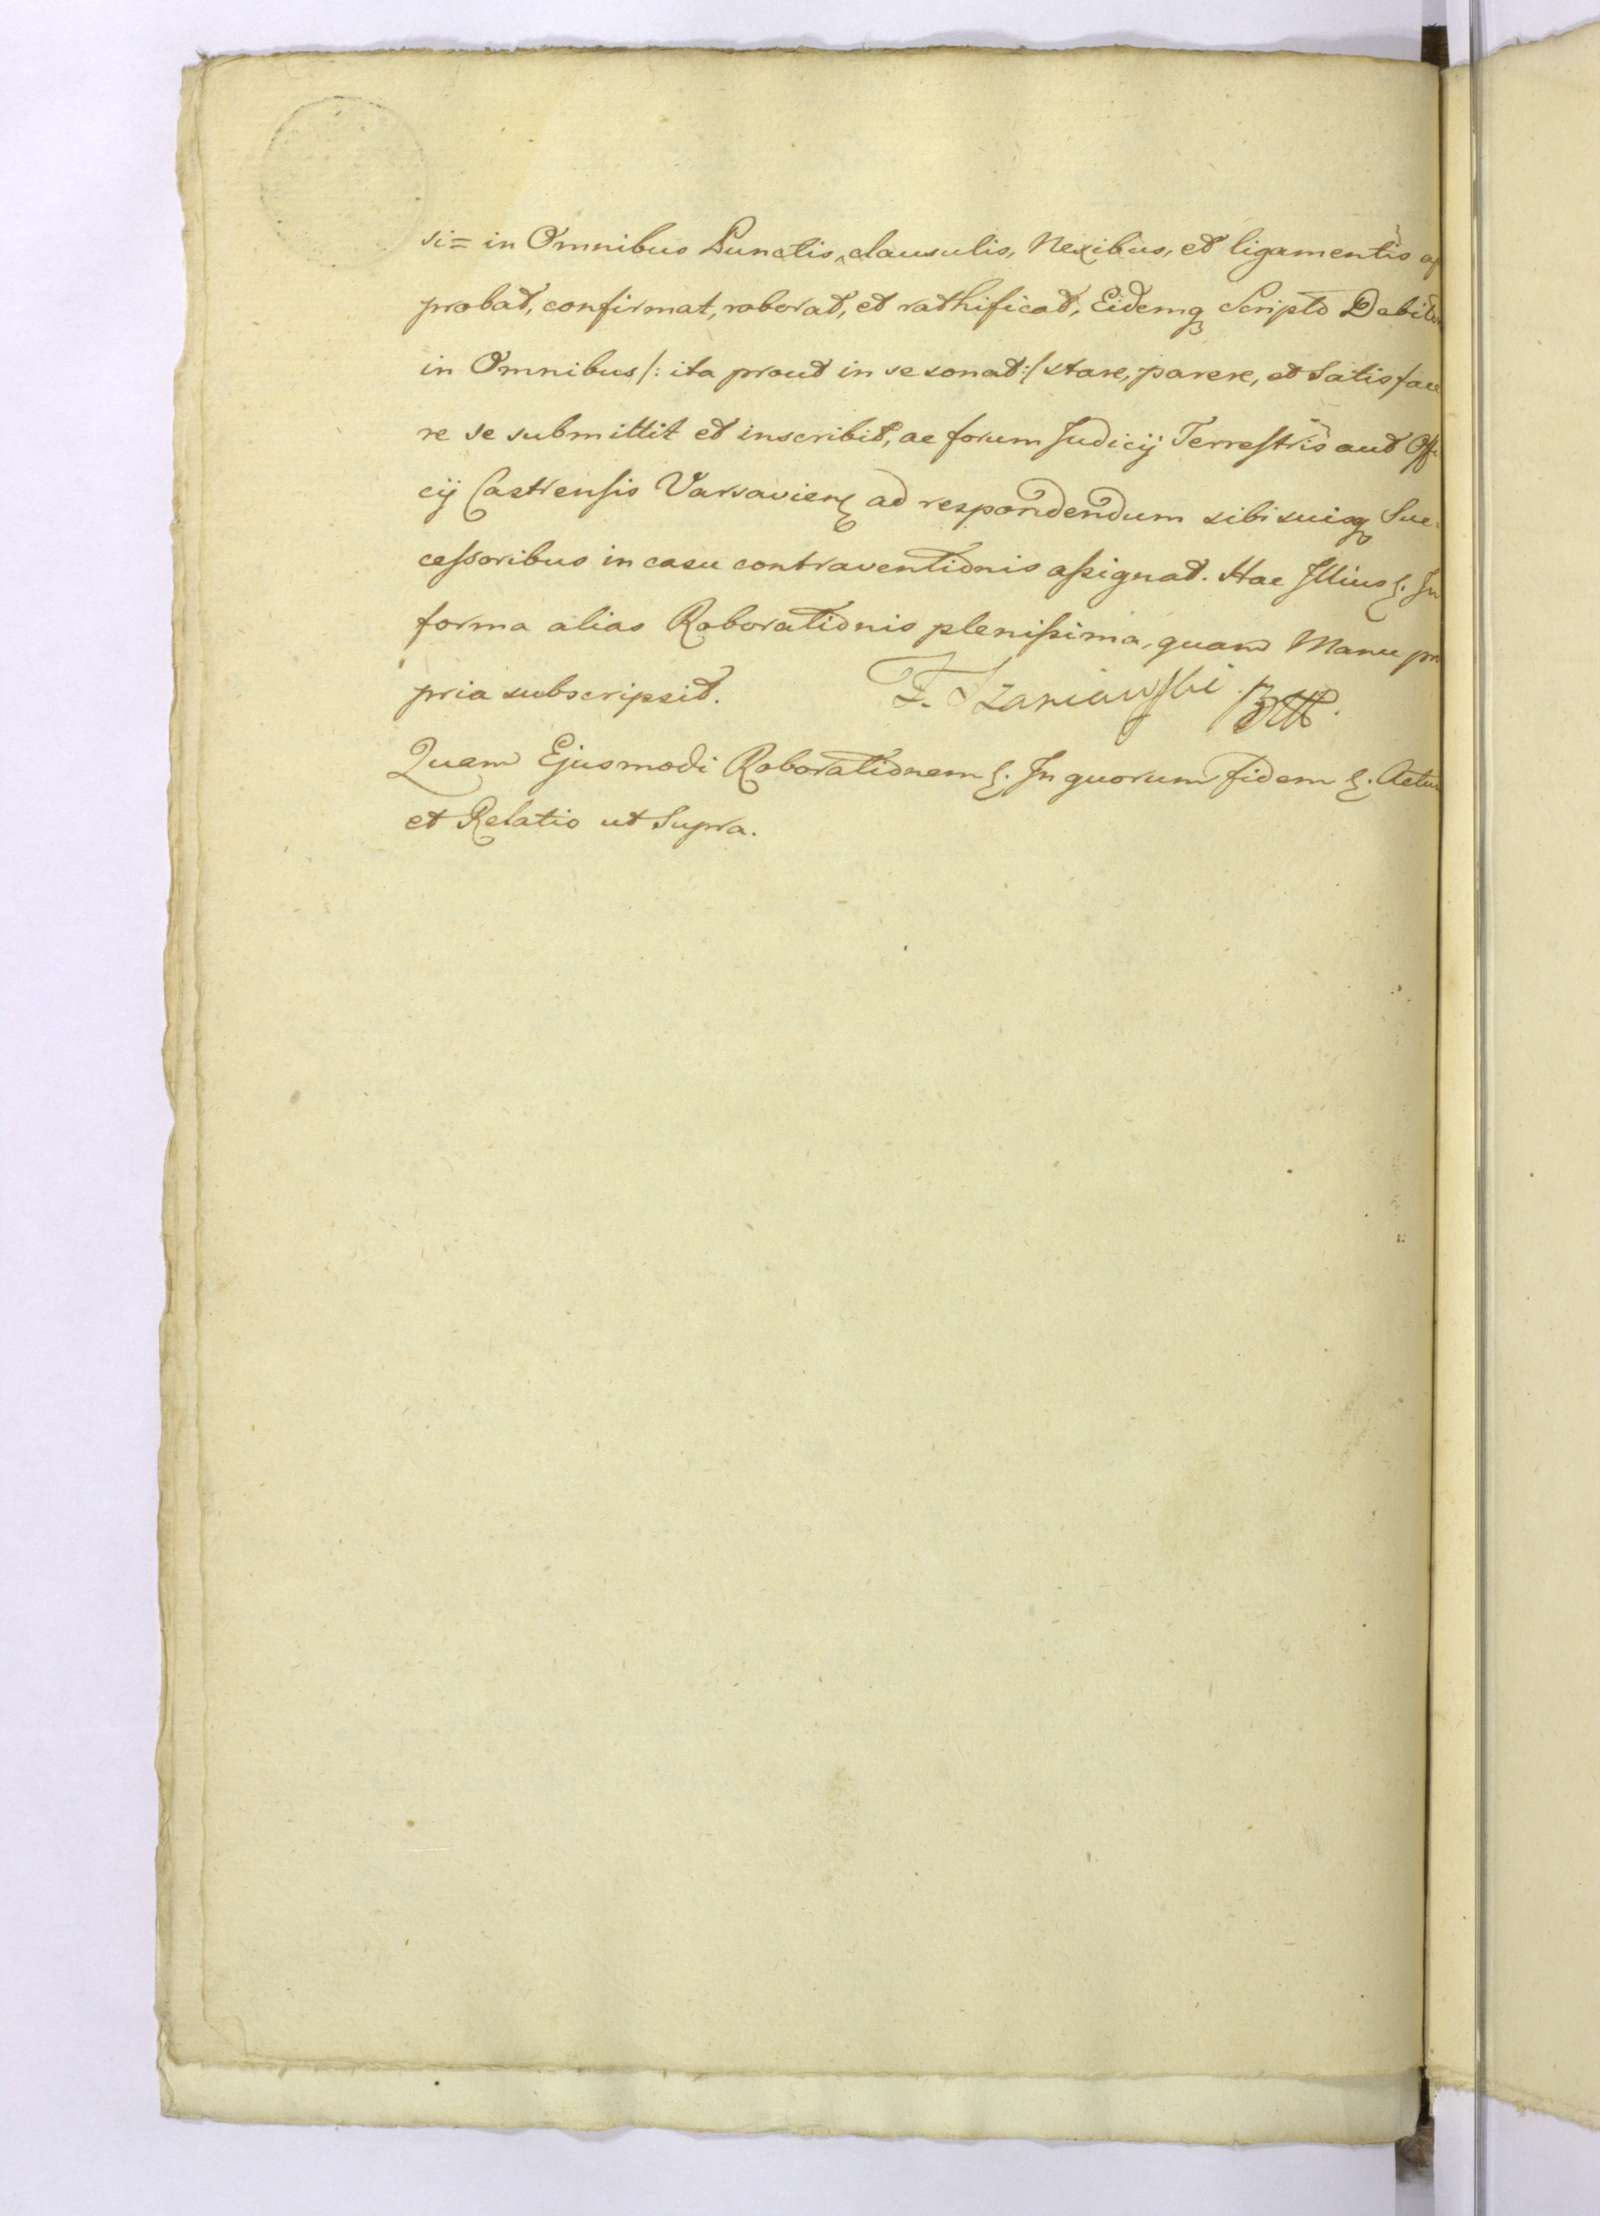 si= in Omnibus Punctis, clausulis, Nexibus, et ligamentis ap
probat, confirmat, roborat, et rathificat, Eidemq Scripto Debito
in Omnibus /: ita prout in se sonat :/ stare, parere, et Satisface
re se submittit et inscribit, ac forum Judicij Terrestris aut Offi
cij Castrensis Varsavien ad respondendum sibi suisq Suc
cessoribus in casu contraventionis assignat. Hac Illius. In
forma alias Roborationis plenissima, quam Manu pro
pria subscripsit. F. Szaniawski
Quam Ejusmodi Roborationem. In quorum fidem. Actum
et Relatio ut Supra.